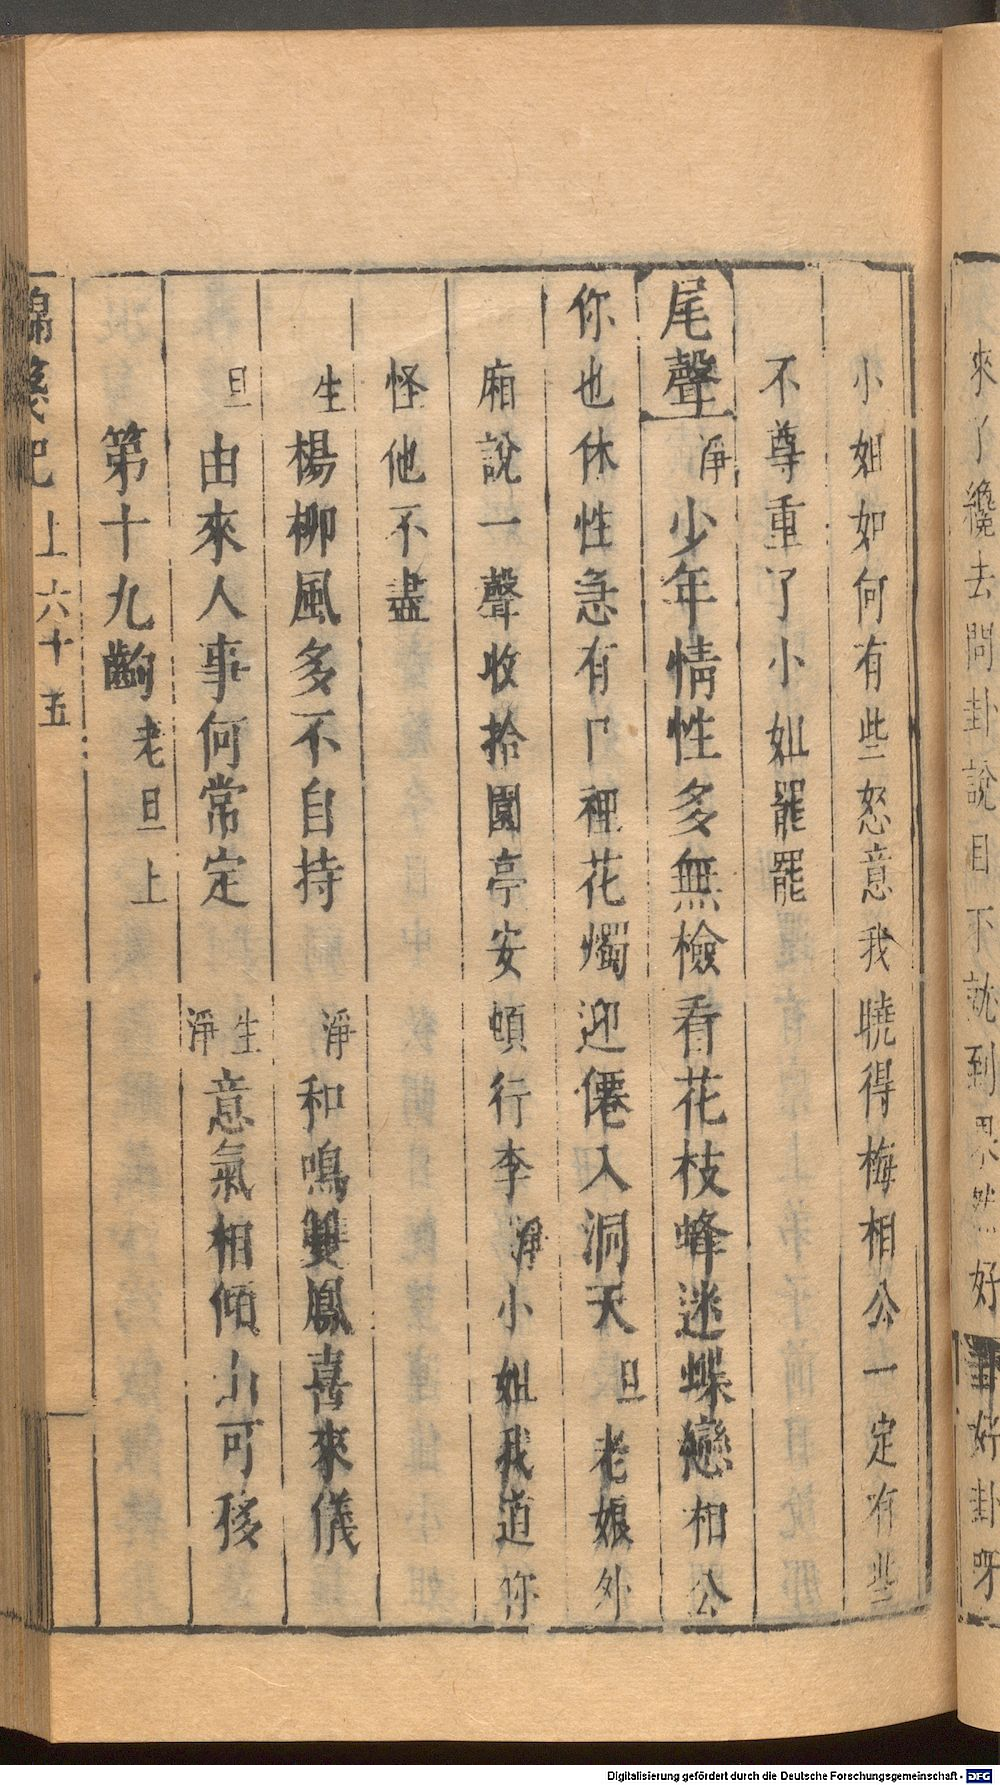 來了纔去問卦說目下就到果然好卦好卦呀
小姐如何有些怒意我曉得梅相公一定有些
不尊重了小姐罷罷
尾聲 淨少年情性多無檢看花枝蜂迷蝶戀相公
你也休性急有尸裡花燭迎僊入洞天旦老娘外
廂說一聲收拾園亭安頓行李淨小姐我道你
怪他不盡
生楊柳風多不自持 淨和鳴雙鳳喜來儀
旦由來人事何常定 生淨意氣相傾山可移
第十九齣 老旦上
錦箋記 上 六十五
Digitalisierung gefördert durch die Deutsche Forschungsgemeinschaft - DFG